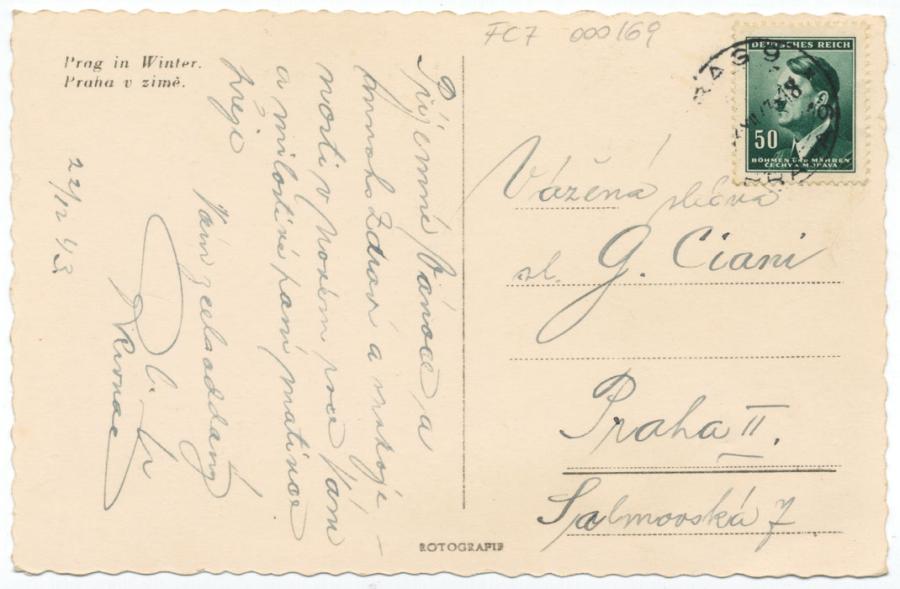 FC7 000/69
Prag in Winter.
Praha v zimě.
Příjemné Vánoce a
mnoho zdraví a spokoje-
nosti v Novém roce Vám
a milostivé paní matince
přeje
Vám zcela oddaný
22/12 43
DEUTSCHES REICH
50
BÖHMEN UND MÄHREN
ČECHY A MORAVA
Vážená slečna
sl. G. Ciani
Praha II.
Salmovská 7
ROTOGRAFIE